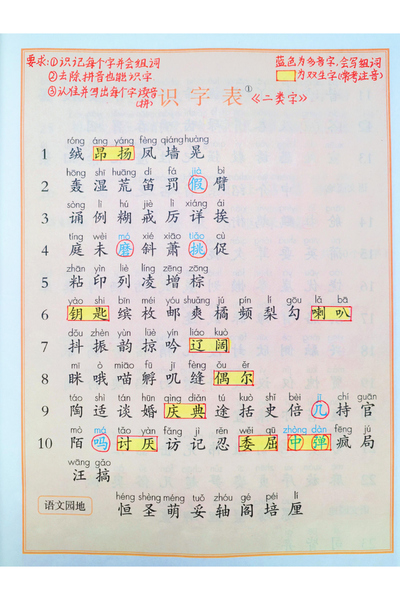 要求:①识记每个字并会组词
②去除拼音也能识字
③认住并写出每个字读音
(拼)
蓝色为多音字,会写组词
为双生字(常考注音)
识字表①《二类字》
róng áng yáng fèng qiáng huàng
1 绒 昂 扬 凤 墙 晃
hōng shī huāng dí fá jià bì
2 轰 湿 荒 笛 罚 假 臂
sòng lì hú jiè lì xiáng ái
3 诵 例 糊 戒 厉 详 挨
tíng wèi mó xié xiāo tiǎo cù
4 庭 未 磨 斜 萧 挑 促
zhān yìn liè líng zēng zōng
5 粘 印 列 凌 增 棕
yào shi bīn méi yóu shuǎng jú pín lí gōu lǎ bā
6 钥 匙 缤 枚 邮 爽 橘 频 梨 勾 喇 叭
dǒu zhèn yùn lüè yín liáo kuò
7 抖 振 韵 掠 吟 辽 阔
mī ó miāo fū jī fèng ǒu ěr
8 眯 哦 喵 孵 叽 缝 偶 尔
táo shì tán hūn qìng diǎn tú kuò shǐ bèi jǐ chí guān
9 陶 适 谈 婚 庆 典 途 括 史 倍 几 持 官
mò má tǎo yàn fǎng jì rěn wěi qū zhòng dàn fēng jú
10 陌 吗 讨 厌 访 记 忍 委 屈 中 弹 疯 局
wāng gǎo
汪 搞
héng shèng méng tuǒ zhóu gé péi lí
语文园地 恒 圣 萌 妥 轴 阁 培 厘